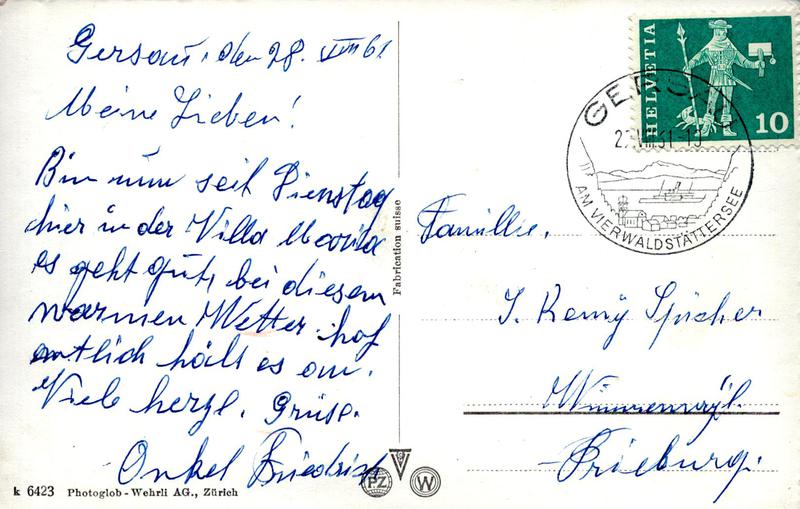 Gersau, den 28. VIII 61
Meine Lieben!
Bin nun seit Dienstag
hier in der Villa Maria
es geht gut, bei diesem
warmen Wetter. hof
entlich hält es an.
Viele herzl. Grüse.
Onkel Friedrich
k 6423 Photoglob-Wehrli AG., Zürich
Fabrication suisse
PZ
W
HELVETIA
10
GERSAU
VIII.61-
AM VIERWALDSTÄTTERSEE
Famillie.
J. Remy Spicher
Frieburg.